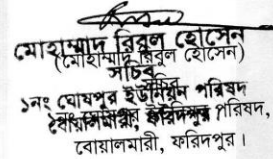 মোহাম্মাদ রিবুল হোসেন
(মোহাম্মাদ রিবুল হোসেন)
সচিব
১নং ঘোষপুর ইউনিয়ন পরিষদ
বোয়ালমারী, ফরিদপুর পরিষদ,
বোয়ালমারী, ফরিদপুর।